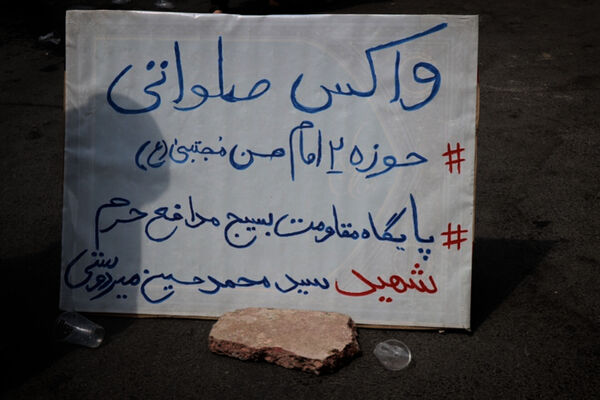 واکس صلواتی
# حوزه ۲ امام حسن مجتبی (ع)
# پایگاه مقاومت بسیج مدافع حرم
شهید سید محمد حسین میردوستی